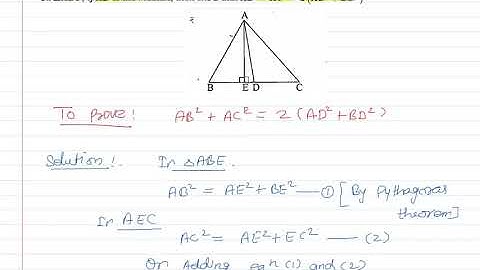 A
B E D C
To Prove! AB² + AC² = 2 (AD² + BD²)
Solution!. In △ABE.
AB² = AE² + BE² — ① [By Pythagoras theorem]
In AEC
AC² = AE² + EC² — (2)
On Adding eqn (1) and (2)